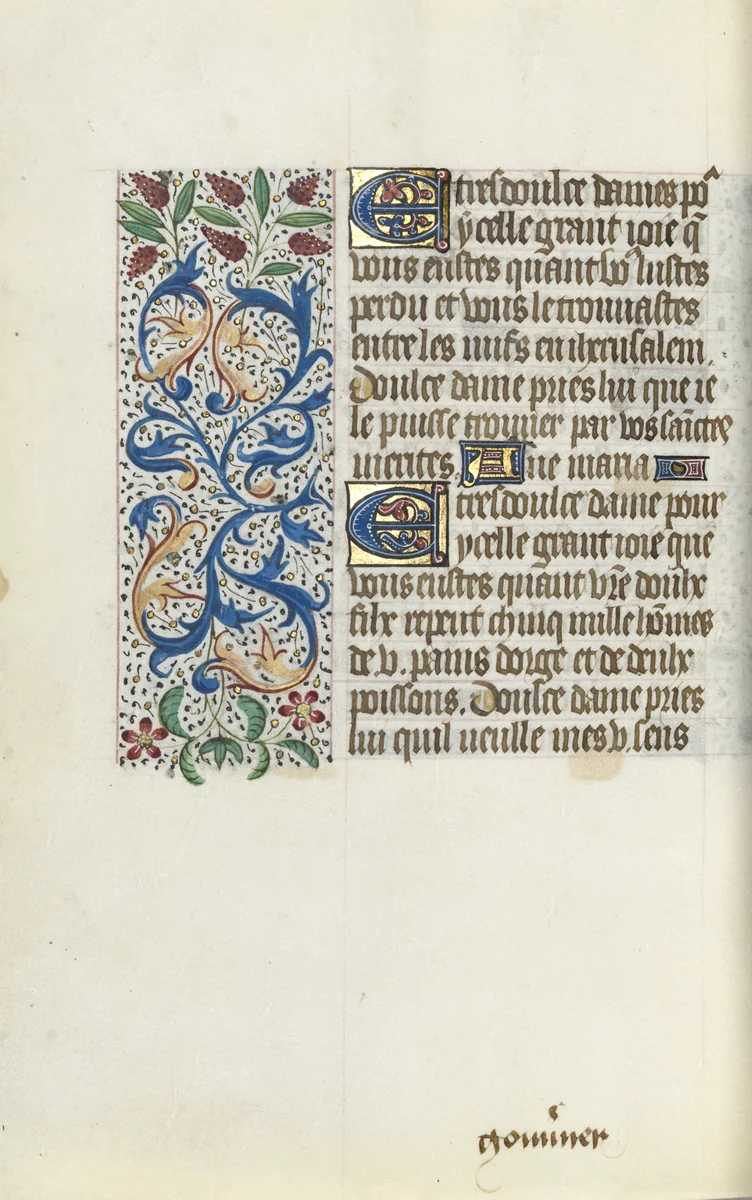 E tresdoulce dames po᷑
ycelle grant ioie q̃
vous eustes quant vo᷑ leustes
perdu et vous le trouuastes
entre les iuifs en iherusalem.
Doulce dame pries lui que ie
le puisse trouuer par vos saĩctes
merites. Aue maria
E tresdoulce dame pour
ycelle grant ioie que
vous eustes quant vr̃e doulx
filx reput chinq mille hõmes
de v. pains dorge et de deulx
poissons. Doulce dame pries
lui quil ueulle mes v. sens